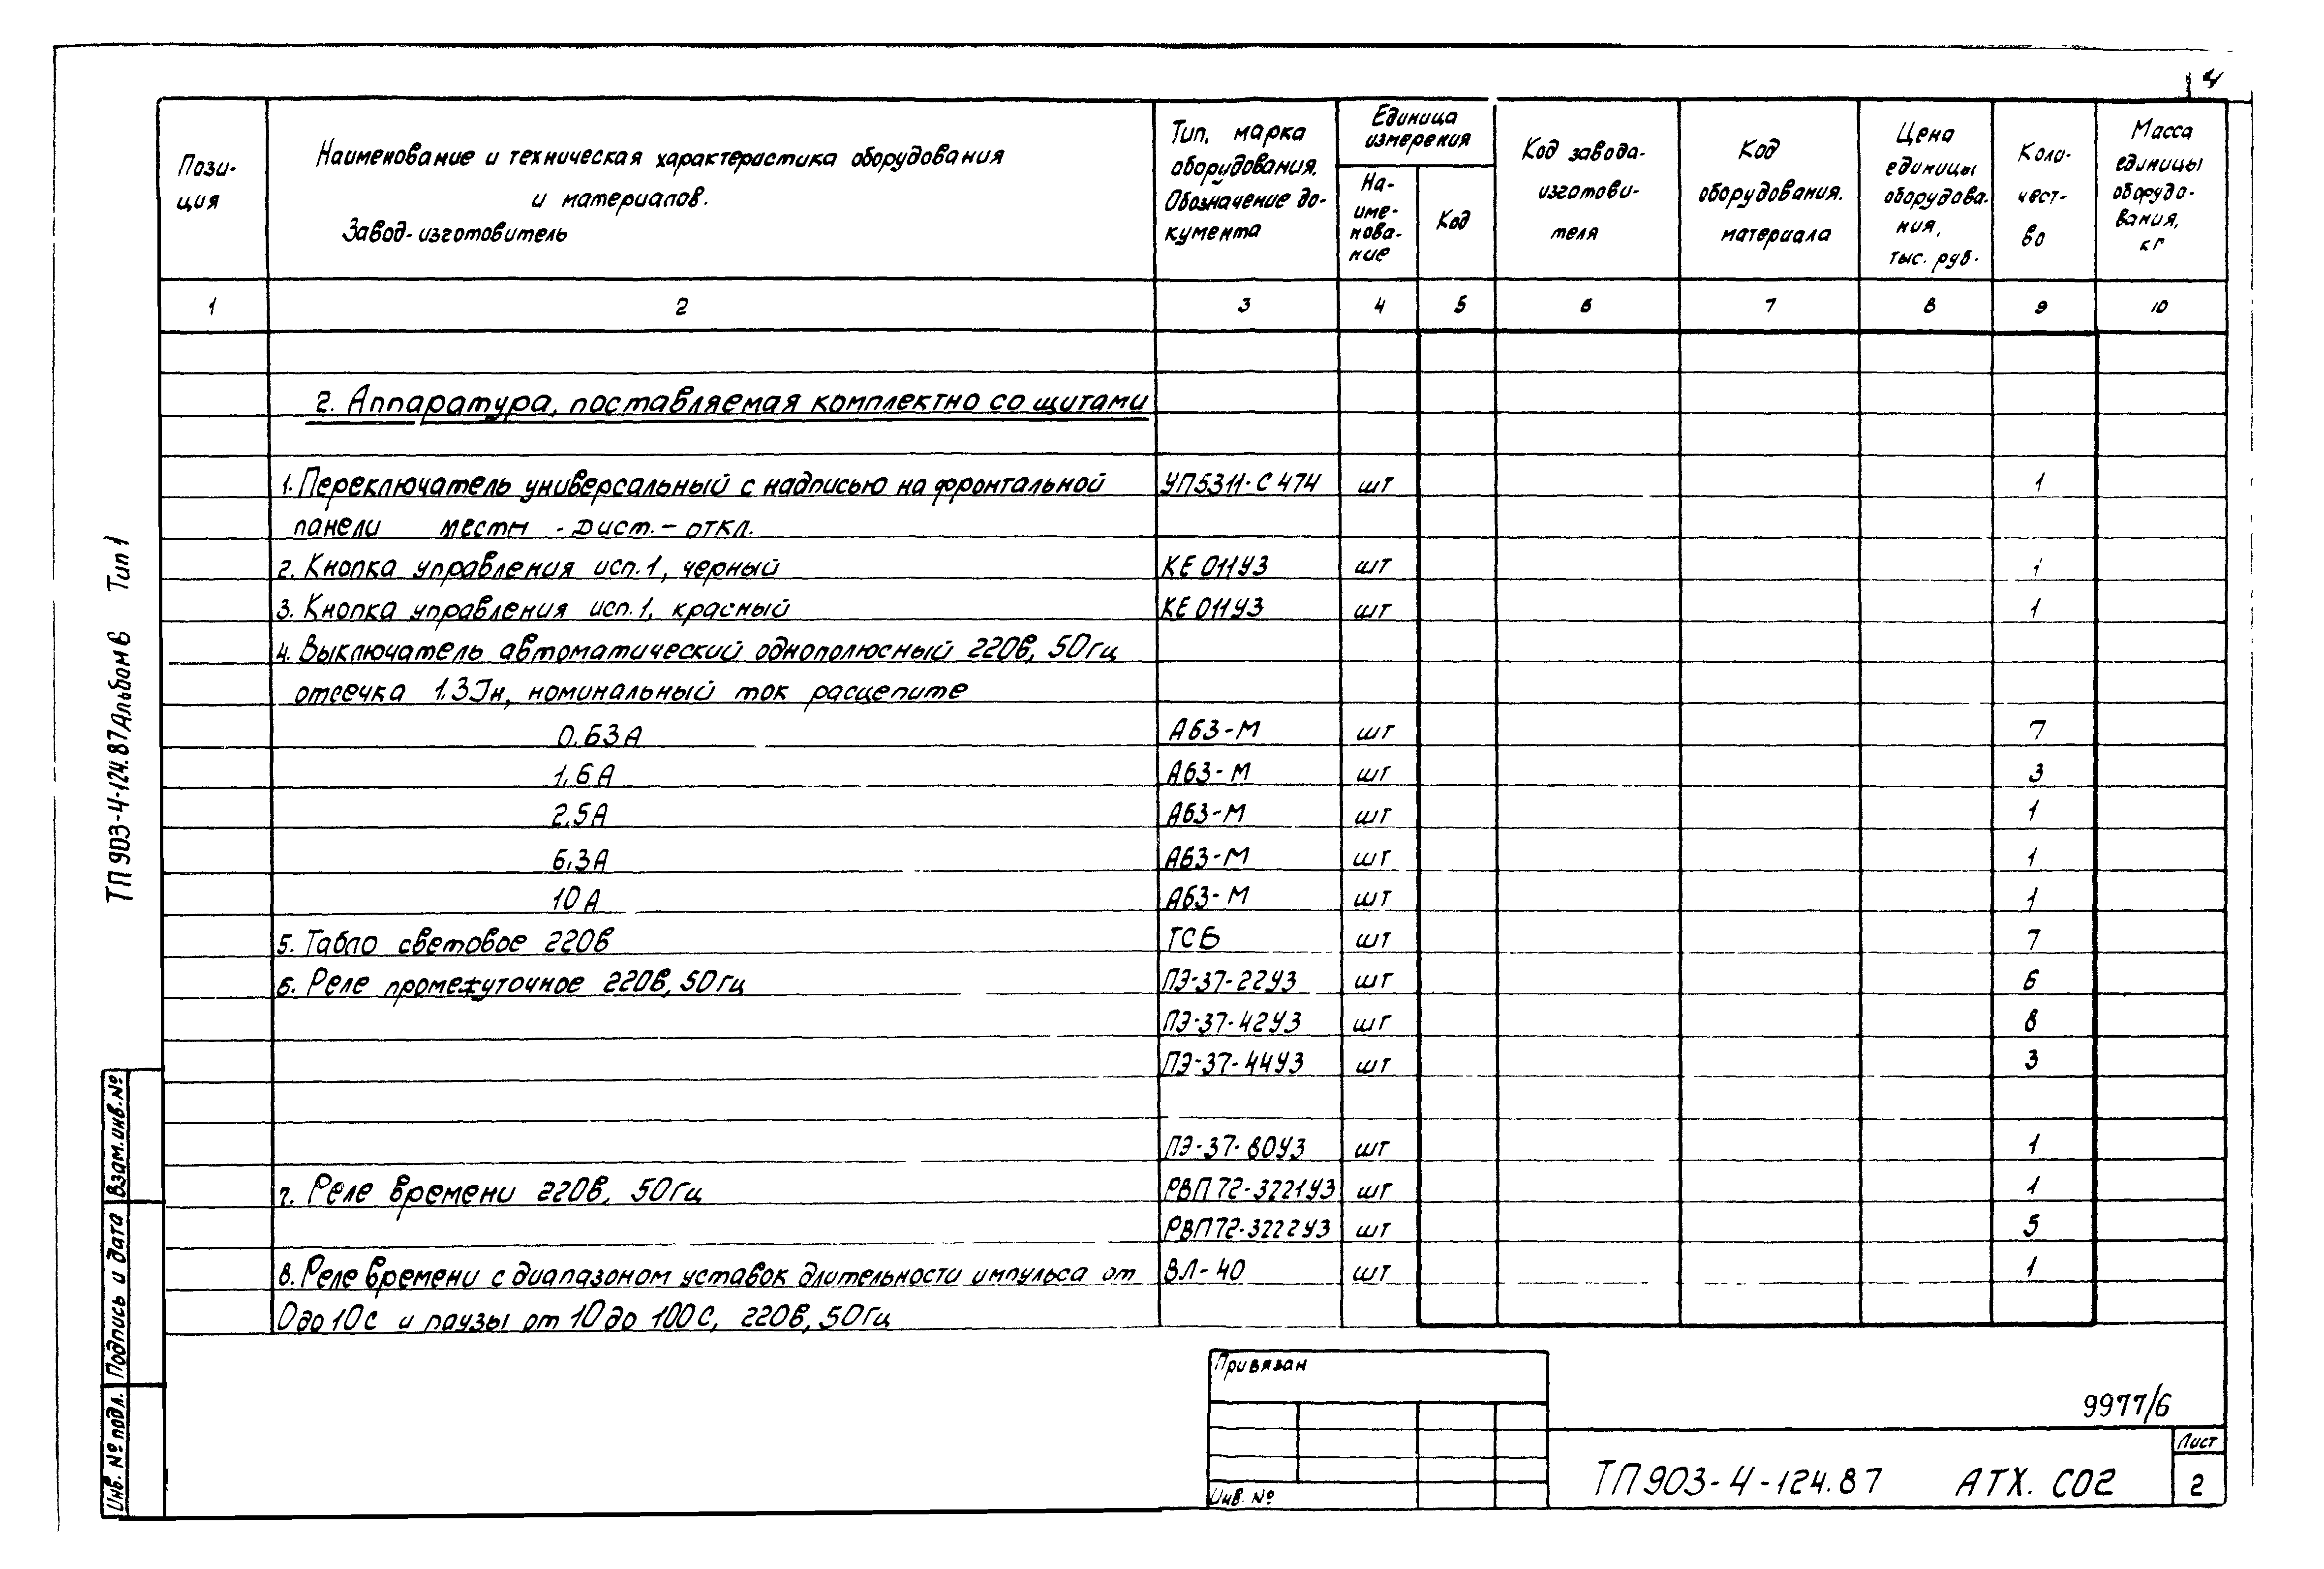 4
Пози-
ция
Наименование и техническая характеристика оборудования
и материалов.
Завод-изготовитель
Тип, марка
оборудования.
Обозначение до-
кумента
Единица
измерения
На-
име-
нова-
ние
Код
Код завода-
изготови-
теля
Код
оборудования.
материала
Цена
единицы
оборудова-
ния,
тыс. руб.
Коли-
чест-
во
Масса
единицы
оборудо-
вания,
кг
1 2 3 4 5 6 7 8 9 10
2. Аппаратура, поставляемая комплектно со щитами
1. Переключатель универсальный с надписью на фронтальной УП5311-С474 шт 1
панели местн - Дист. - откл.
2. Кнопка управления исп.1, черный КЕ 011У3 шт 1
3. Кнопка управления исп.1, красный КЕ 011У3 шт 1
4. Выключатель автоматический однополюсный 220в, 50гц
отсечка 1.3Iн, номинальный ток расцепите
0.63А А63-М шт 7
1,6А А63-М шт 3
2,5А А63-М шт 1
6,3А А63-М шт 1
10А А63-М шт 1
5. Табло световое 220в ТСБ шт 7
6. Реле промежуточное 220в, 50гц ПЭ-37-22У3 шт 6
ПЭ-37-42У3 шт 8
ПЭ-37-44У3 шт 3
ПЭ-37-80У3 шт 1
7. Реле времени 220в, 50гц РВП72-3221У3 шт 1
РВП72-3222У3 шт 5
8. Реле времени с диапазоном уставок длительности импульса от ВЛ-40 шт 1
0 до 10с и паузы от 10 до 100с, 220в, 50гц
ТП 903-4-124.87 Альбом 6 Тип 1
Инв. № подл. Подпись и дата Взам. инв. №
Привязан
Инв. №
9977/6
ТП 903-4-124.87 АТХ. СО2
Лист
2